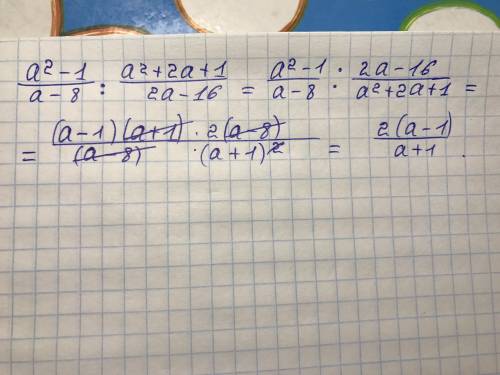 (a² - 1)/(a - 8) : (a² + 2a + 1)/(2a - 16) = (a² - 1)/(a - 8) · (2a - 16)/(a² + 2a + 1) =
= ((a - 1)(a + 1) · 2(a - 8))/((a - 8) · (a + 1)²) = 2(a - 1)/(a + 1).